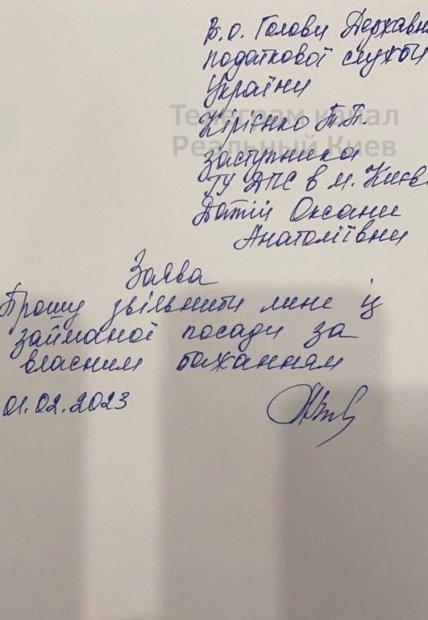 В.о. Голови Державн
податкової служби
України
Кірієнко Т.П.
Телеграм канал
Реальный Киев
Заступника
ГУ ДПС в м. Києв
Датій Оксани
Анатоліївни
Заява
Прошу звільнити мене із
займаної посади за
власним бажанням
01.02.2023